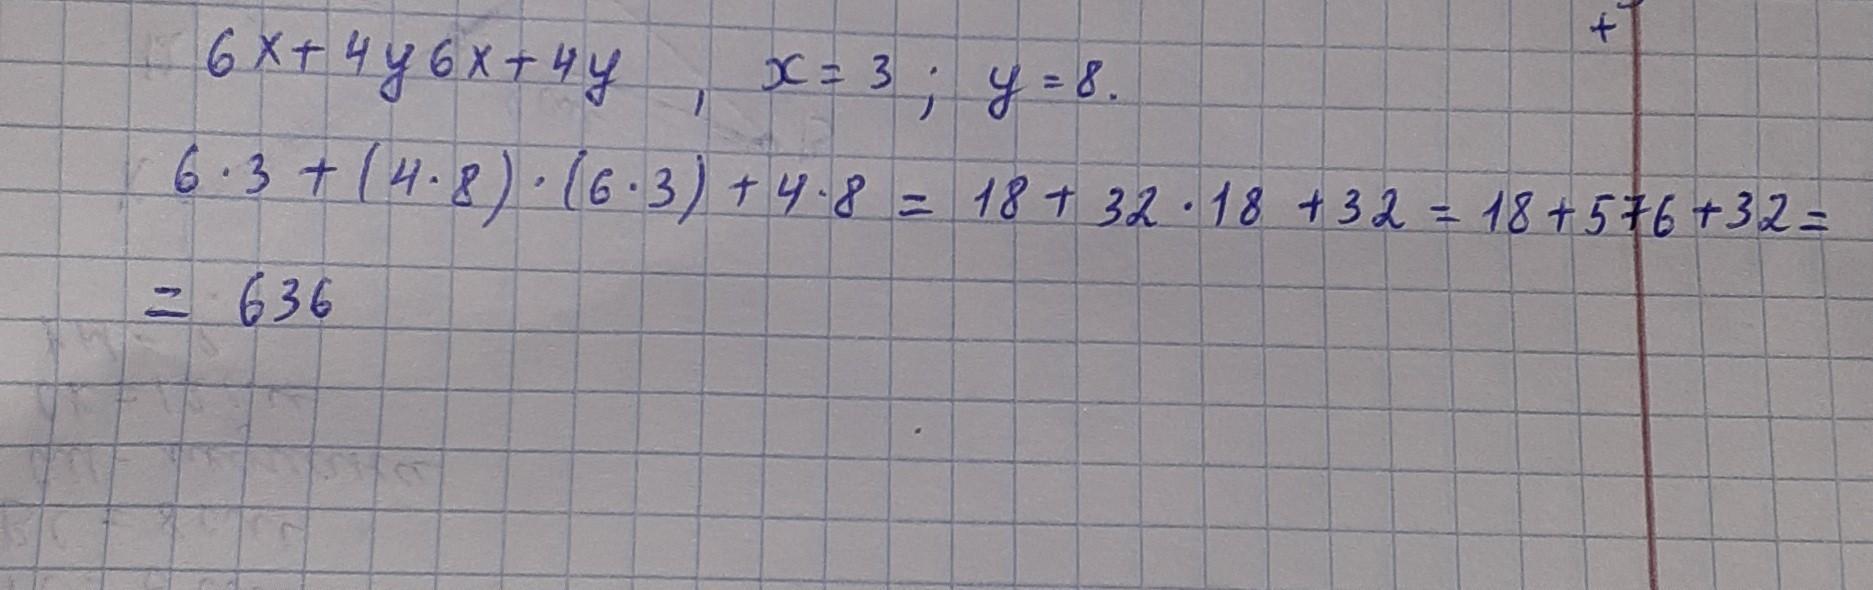 6x+4y6x+4y, x=3; y=8.
6·3+(4·8)·(6·3)+4·8=18+32·18+32=18+576+32=
=636